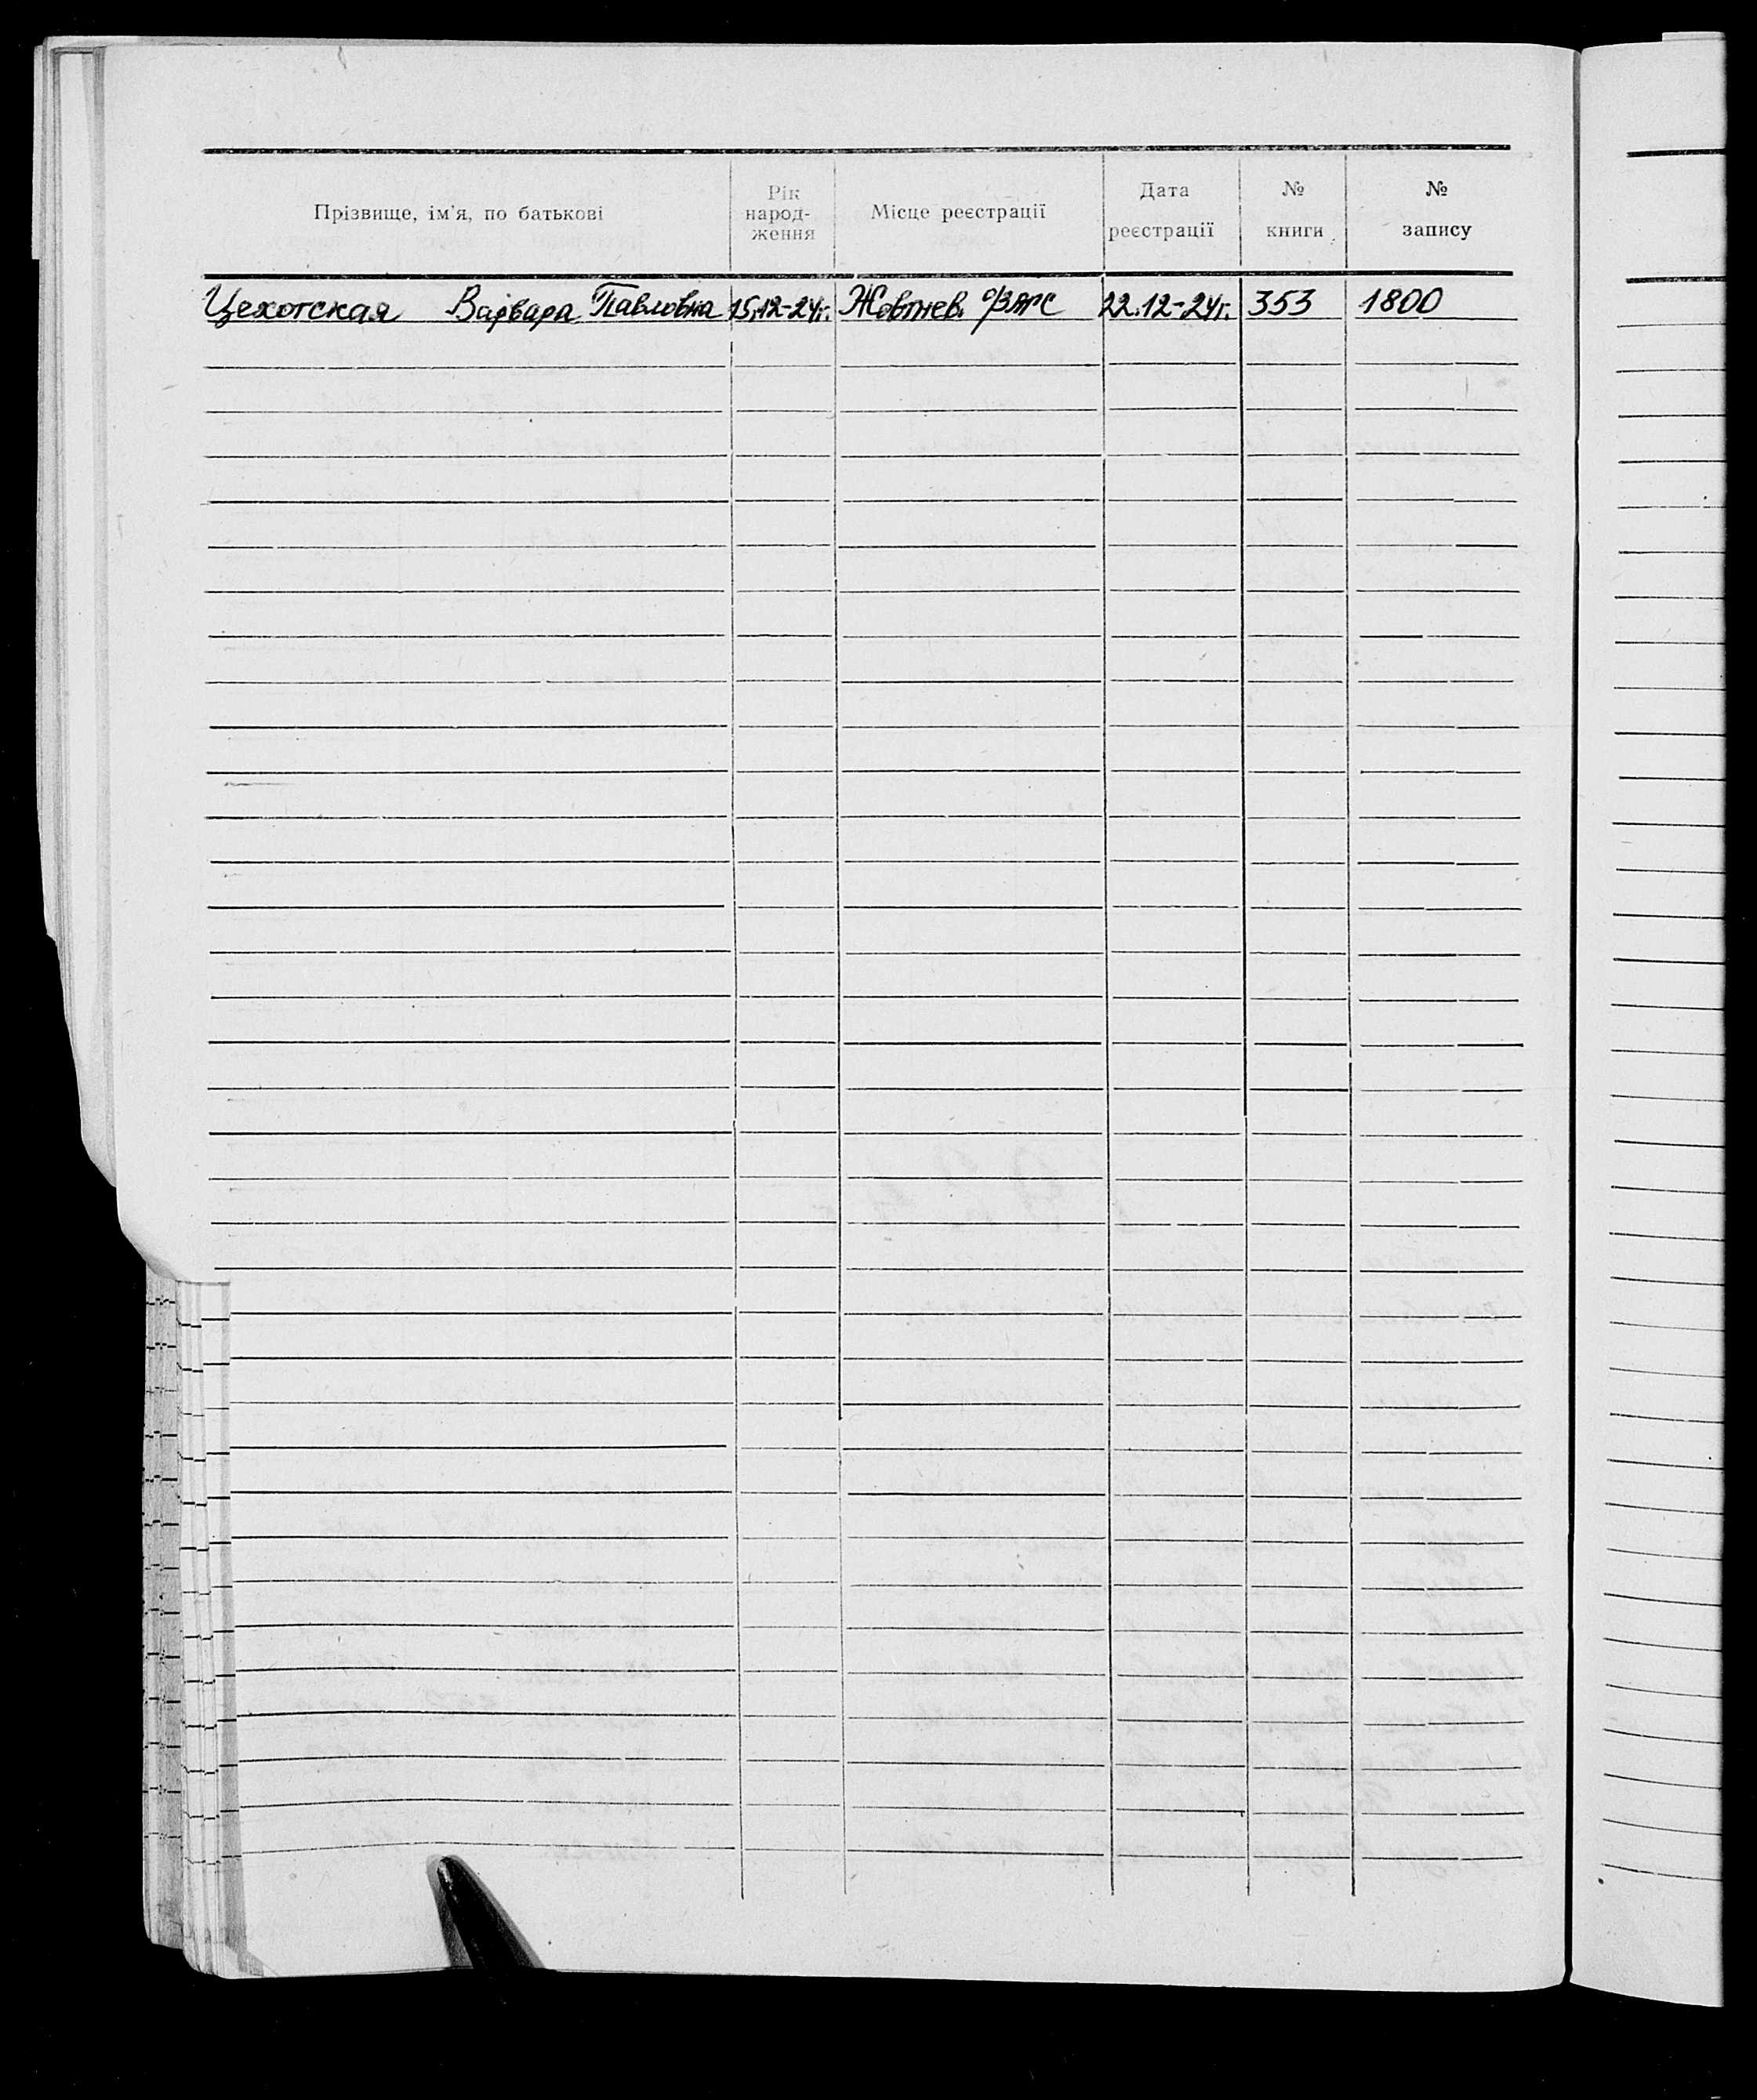 Прізвище, ім'я, по батькові Рік народ- ження Місце реєстрації Дата реєстрації № книги № запису
Цехотская Варвара Павловна 15.12-24г. Жовтнев. о/ЗАГС 22.12-24г. 353 1800